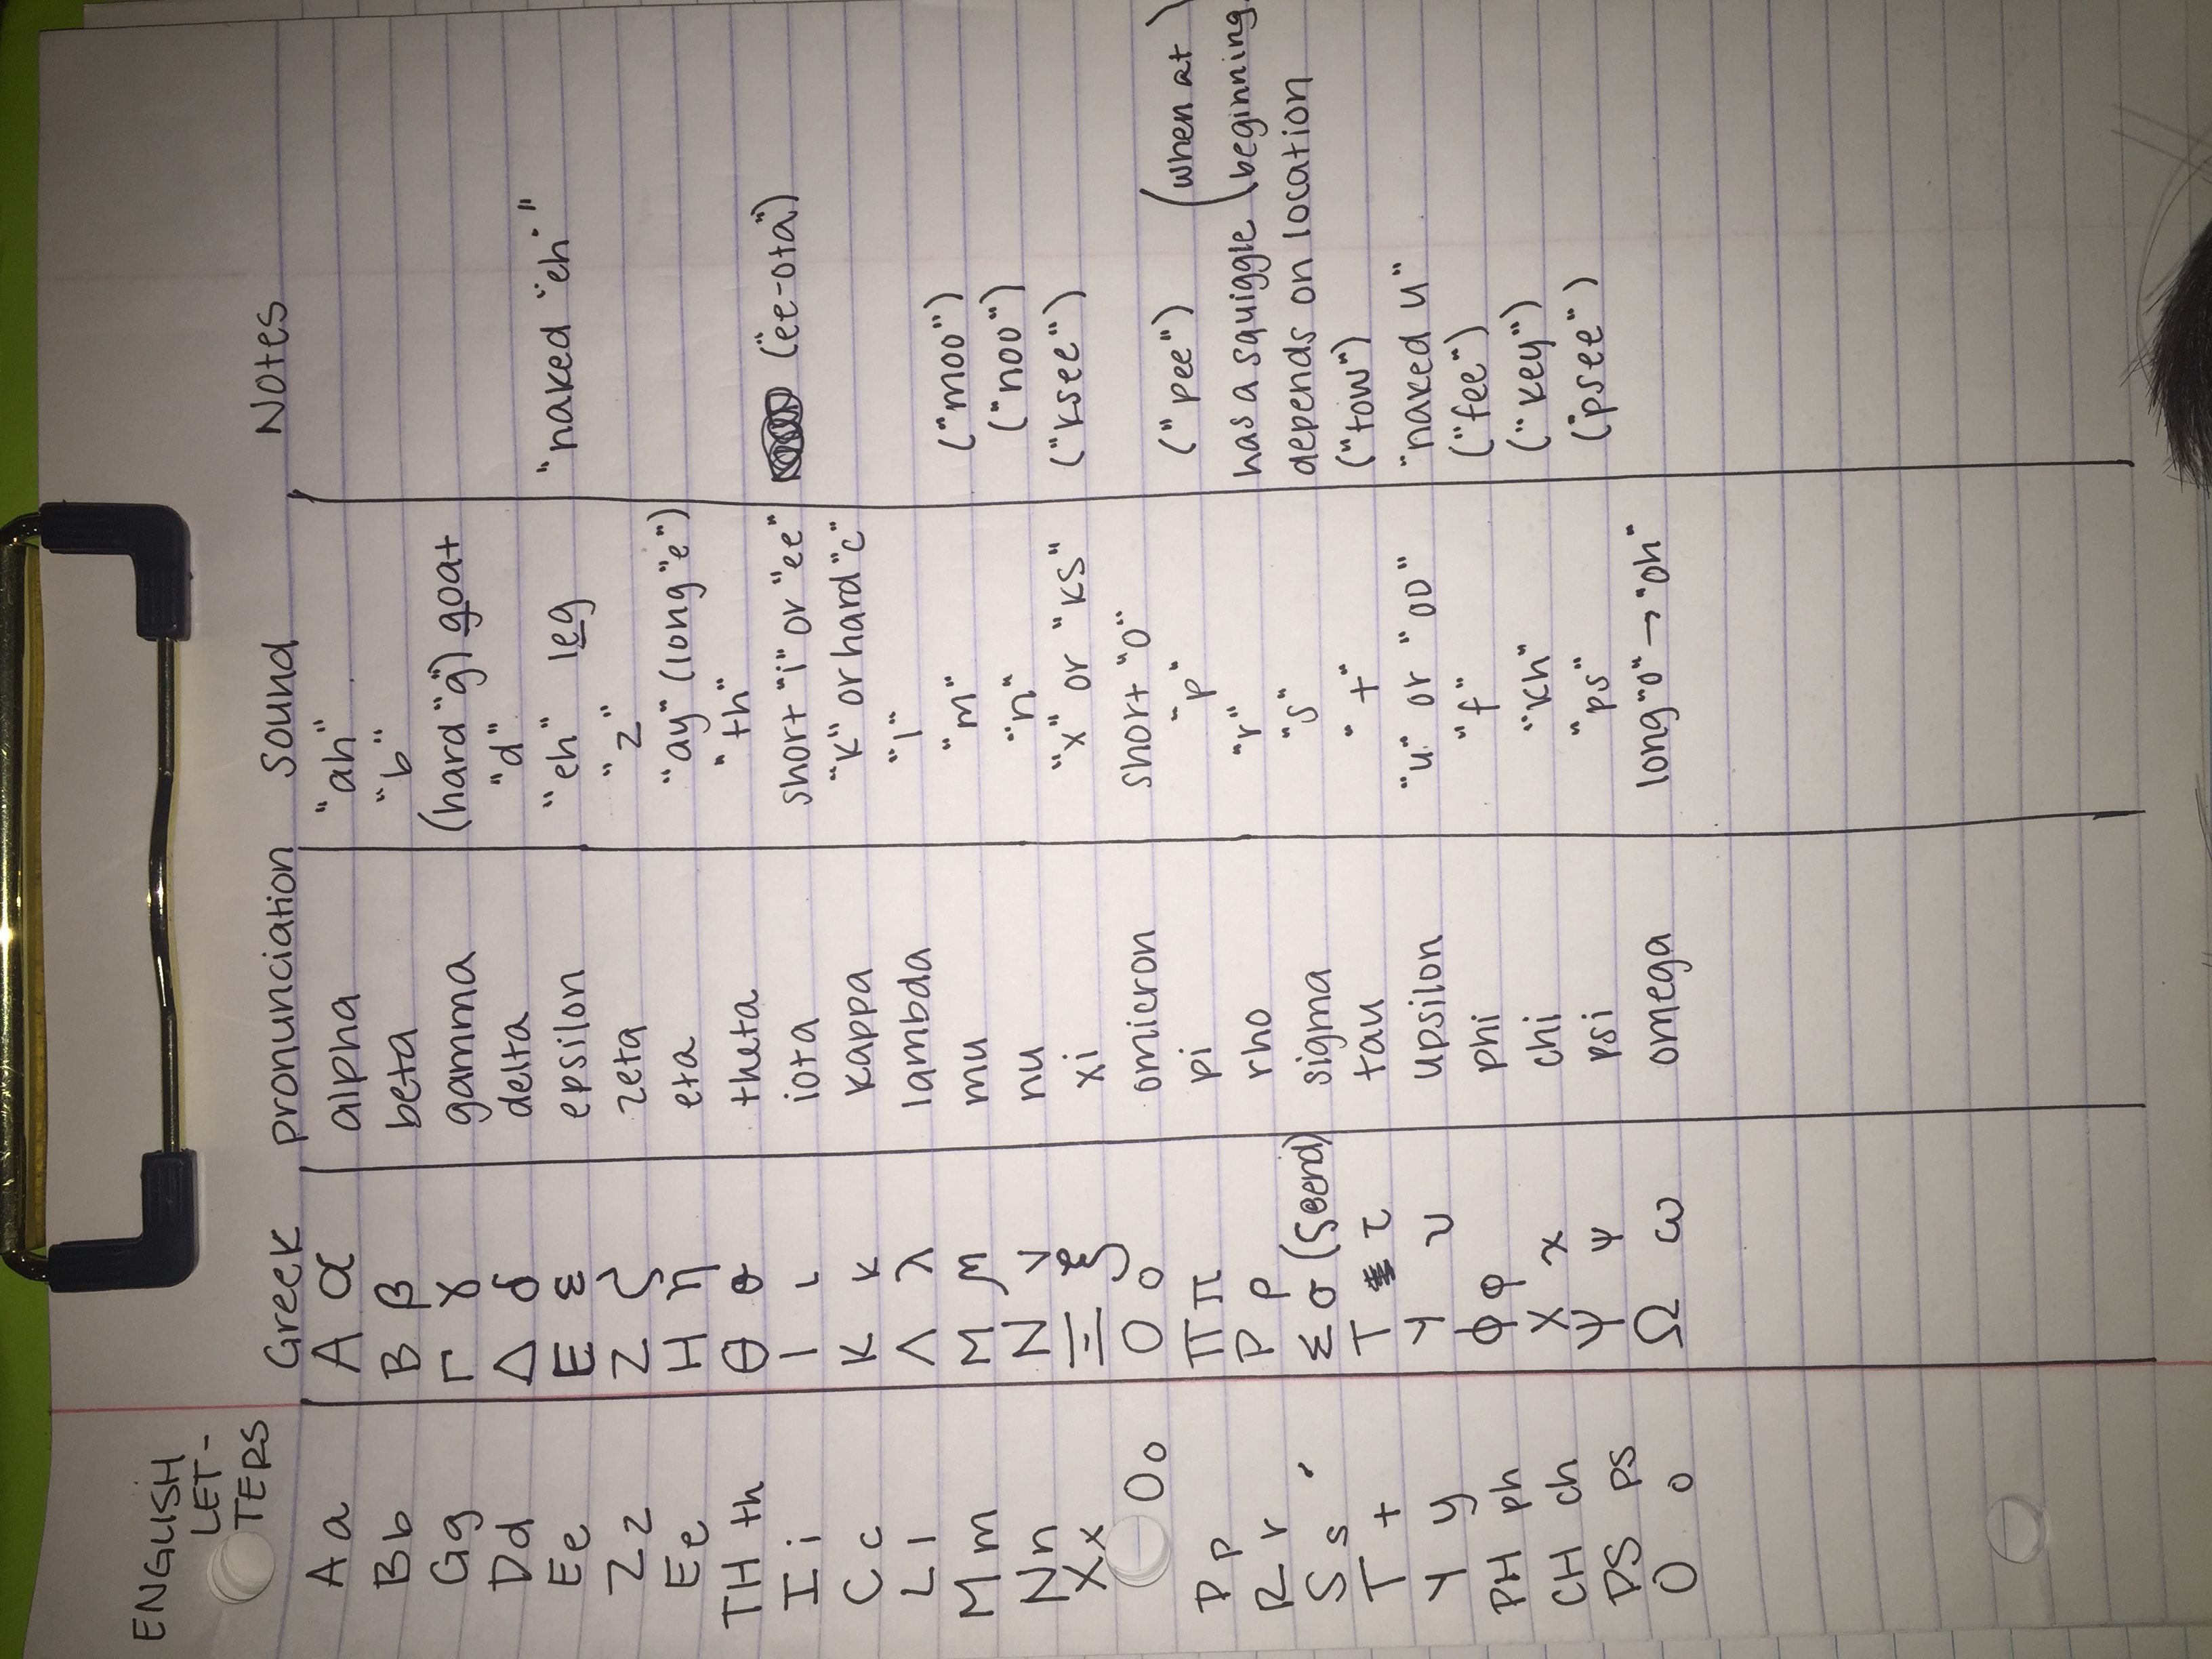 ENGLISH LET-TERS Greek pronunciation sound Notes
A a A α alpha "ah"
B b B β beta "b"
G g Γ γ gamma (hard "g") goat
D d Δ δ delta "d"
E e E ε epsilon "eh" leg "naked "eh""
Z z Z ζ zeta "z"
E e H η eta "ay" (long "e")
TH th Θ θ theta "th"
I i Ι ι iota short "i" or "ee" ("ee-ota")
C c K κ kappa "k" or hard "c"
L l Λ λ lambda "l"
M m M μ mu "m" ("moo")
N n N ν nu "n" ("noo")
X x Ξ ξ xi "x" or "ks" ("ksee")
O o O o omicron short "o"
P p Π π pi "p" ("pee")
R r P ρ rho "r" has a squiggle (when at beginning)
S s Σ σ (ς @ end) sigma "s" depends on location
T t T τ tau "t" ("tow")
Y y Υ υ upsilon "u" or "oo" "naked u"
PH ph Φ φ phi "f" ("fee")
CH ch X χ chi "kh" ("key")
PS ps Ψ ψ psi "ps" ("psee")
O o Ω ω omega long "o" → "oh"